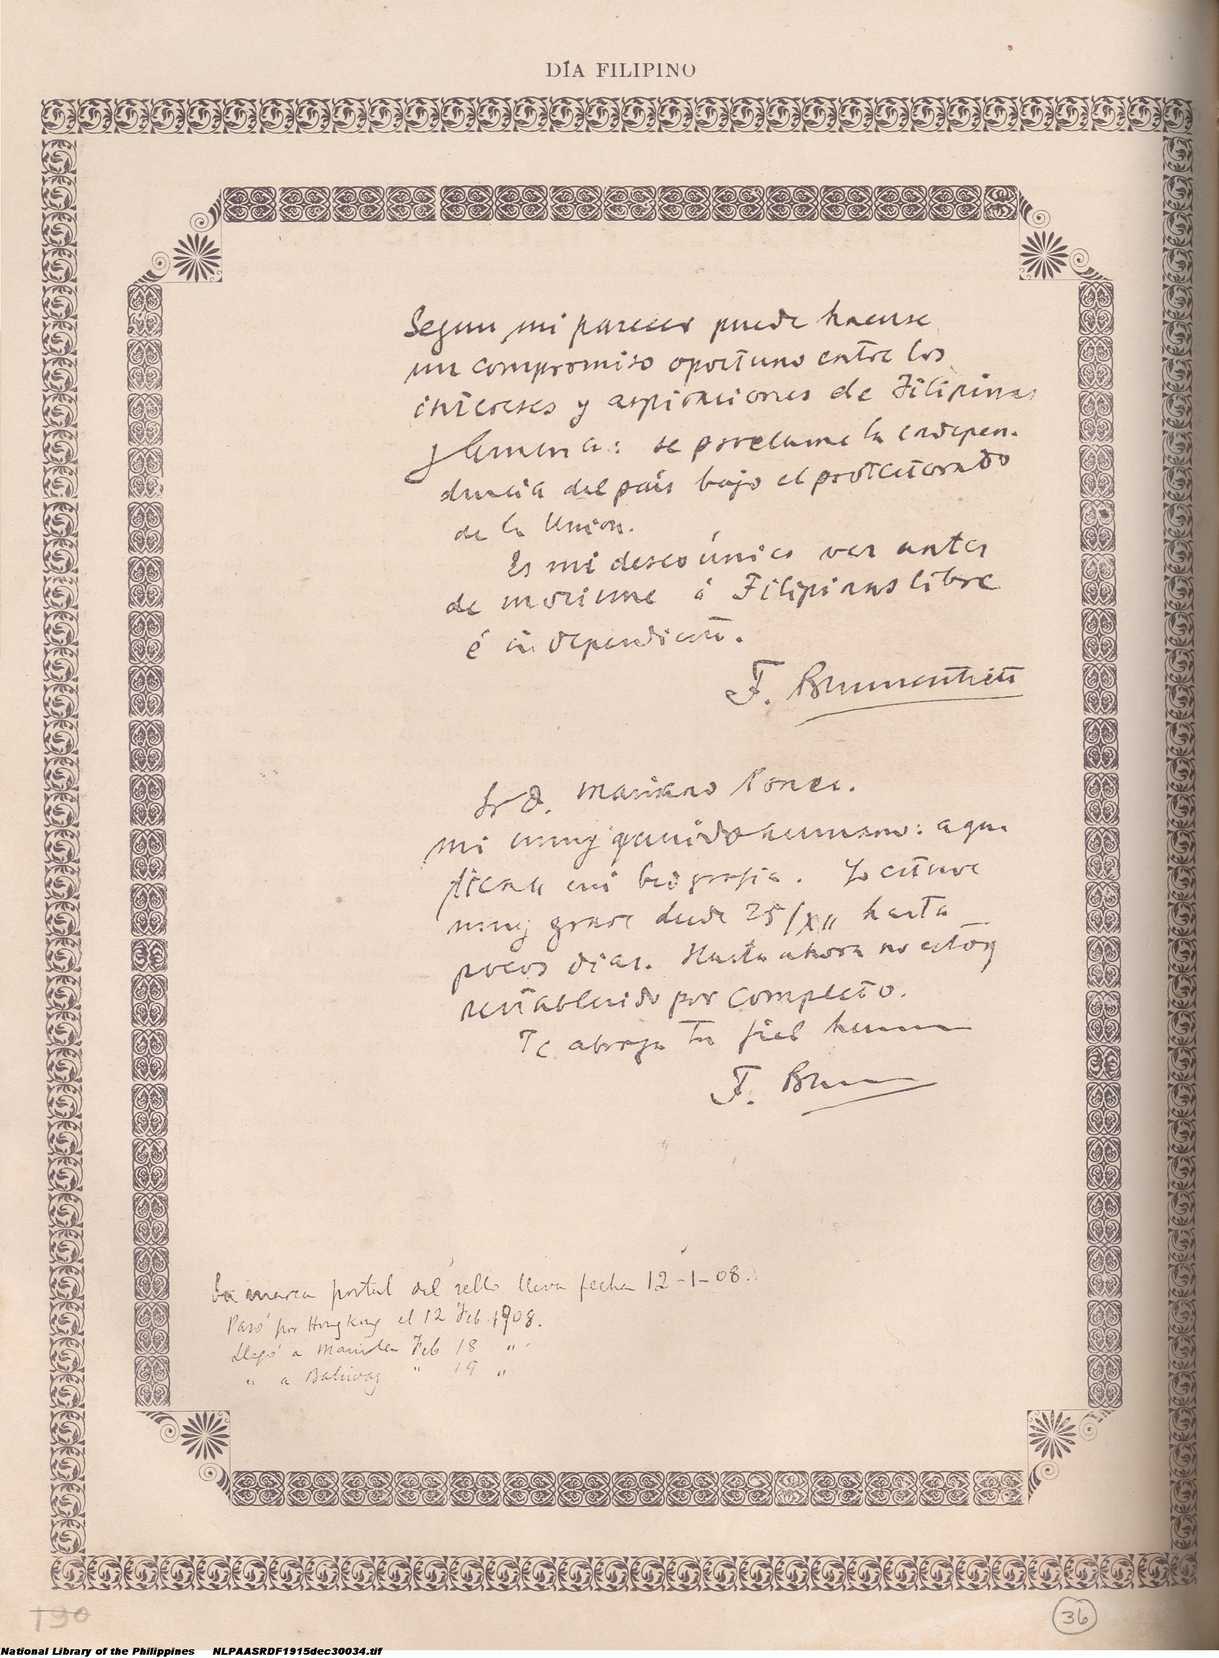 DÍA FILIPINO
Segun mi parecer puede hacerse
un compromiso oportuno entre los
intereses y aspiraciones de Filipinas
y America: se proclame la indepen-
dencia del país bajo el protectorado
de la Union.
Es mi deseo único ver antes
de morirme á Filipinas libre
é independiente.
F. Blumentritt
Sr D. Mariano Ponce.
Mi muy querido hermano: aqui
tienes mi biografia. Yo estuve
muy grave desde 25/XII hasta
pocos dias. Hasta ahora no estoy
restablecido por completo.
Te abraza tu fiel hermano
F. Blum
La marca postal del sello lleva fecha 12-1-08.
Pasó por Hongkong el 12 Feb. 1908.
Llegó a Manila Feb 18 "
" a Baliwag " 19 "
T90
36
National Library of the Philippines NLPAASRDF1915dec30034.tif